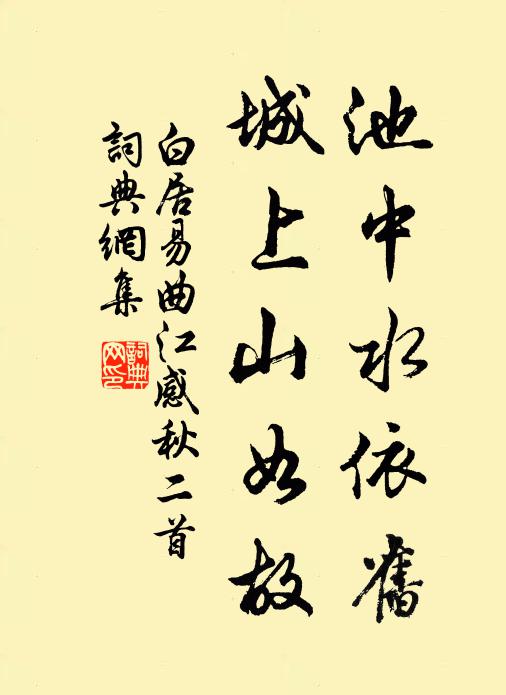 池中水依舊
城上山如故
白居易曲江感秋二首
詞典網集
詞典網印